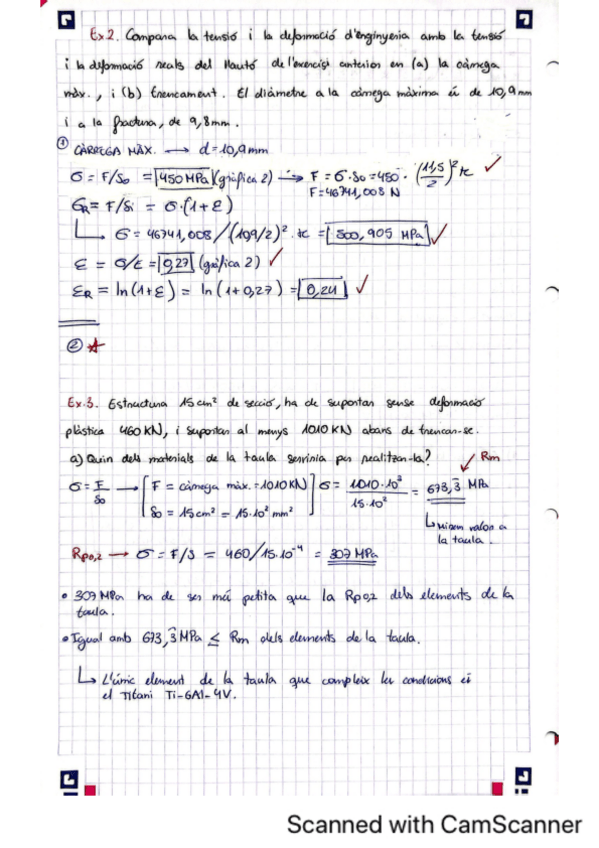 Ex.2. Compara la tensió i la deformació d'enginyeria amb la tensió
i la deformació reals del llautó de l'exercici anterior en (a) la càrrega
màx., i (b) trencament. El diàmetre a la càrrega màxima és de 10,9 mm
i a la fractura, de 9,8 mm.
① CÀRREGA MÀX. → d=10,9mm
σ = F/S₀ = 450 MPa (gràfica 2) → F = σ·S₀ = 450 · (11,5/2)² π ✓
F = 46741,008 N
σR = F/Si = σ·(1+ε)
↳ σ = 46741,008/(10,9/2)²·π = 500,905 MPa ✓
ε = σ/E = 0,27 (gràfica 2) ✓
εR = ln(1+ε) = ln(1+0,27) = 0,24 ✓
②
Ex.3. Estructura 15 cm² de secció, ha de suportar sense deformació
plàstica 460 KN, i suportar al menys 1010 KN abans de trencar-se.
a) Quin dels materials de la taula serviria per realitzar-la? Rm
σ = F/S₀ → [F = càrrega màx. = 1010 KN σ = 1010·10³/15·10² = 673,3̂ MPa
S₀ = 15 cm² = 15·10² mm²]
↳ Mirem valor a
la taula.
Rp0,2 → σ = F/S = 460/15·10⁻⁴ = 307 MPa
• 307 MPa ha de ser més petita que la Rp0,2 dels elements de la
taula.
• Igual amb 673,3̂ MPa ≤ Rm dels elements de la taula.
↳ L'únic element de la taula que compleix les condicions és
el Titani Ti-6Al-4V.
Scanned with CamScanner